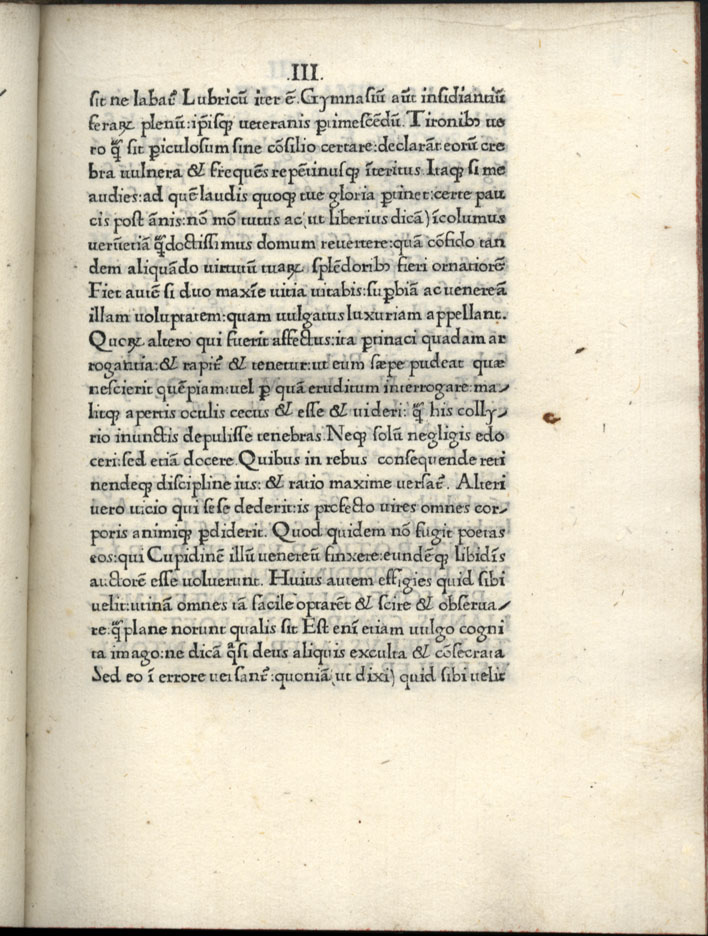 .III.
sit ne labat᷑ Lubricū iter ē. Gymnasiū aūt insidiantiū
feraꝝ plenū: ip̄isqꝫ ueteranis ꝑtimescēdū. Tironibꝫ ue
ro q̄ꝫ sit ꝑiculosum sine cōsilio certare: declarāt eorū cre
bra uulnera & frequēs repētinusqꝫ īteritus. Itaqꝫ si me
audies: ad quē laudis quoqꝫ tue gloria ꝑtinet: certe pau
cis post ānis: nō mō tutus ac (ut liberius dicā) īcolumus
uerūetiā q̄ꝫdoctissimus domum reuertere: quā cōfido tan
dem aliquādo uirtutū tuaꝝ splēdoribꝫ fieri ornatiorē
Fiet autē si duo maxīe uitia uitabis: suꝑbiā ac uenereā
illam uoluptatem: quam uulgatus luxuriam appellant.
Quoꝝ altero qui fuerit affectus: ita ꝑtinaci quadam ar
rogantia: & rapit᷑ & tenetur: ut eum sæpe pudeat quæ
nescierit quēpiam: uel ꝑ quā eruditum interrogare: ma/
litqꝫ apertis oculis cecus & esse & uideri: q̄ꝫ his colly/
rio inunctis depulisse tenebras. Neqꝫ solū negligis edo
ceri: sed etiā docere. Quibus in rebus consequende reti
nendeqꝫ discipline ius: & ratio maxime uersat᷑. Alteri
uero uicio qui sese dederit: is profecto uires omnes cor/
poris animiqꝫ ꝑdiderit. Quod quidem nō fugit poetas
eos: qui Cupidinē illū uenereū finxere: eundēqꝫ libidīs
auctorē esse uoluerunt. Huius autem effigies quid sibi
uelit: utinā omnes tā facile optarēt & scire & obserua/
re: q̄ꝫ plane norunt qualis sit Est enī etiam uulgo cogni
ta imago: ne dicā q̄si deus aliquis exculta & cōsecrata
Sed eo ī errore uersant᷑: quoniā (ut dixi) quid sibi uelit